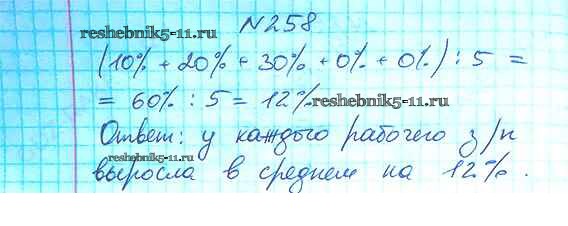 №258
reshebnik5-11.ru
(10% + 20% + 30% + 0% + 0%) : 5 =
= 60% : 5 = 12% reshebnik5-11.ru
Ответ: у каждого рабочего з/п
reshebnik5-11.ru
выросла в среднем на 12%.